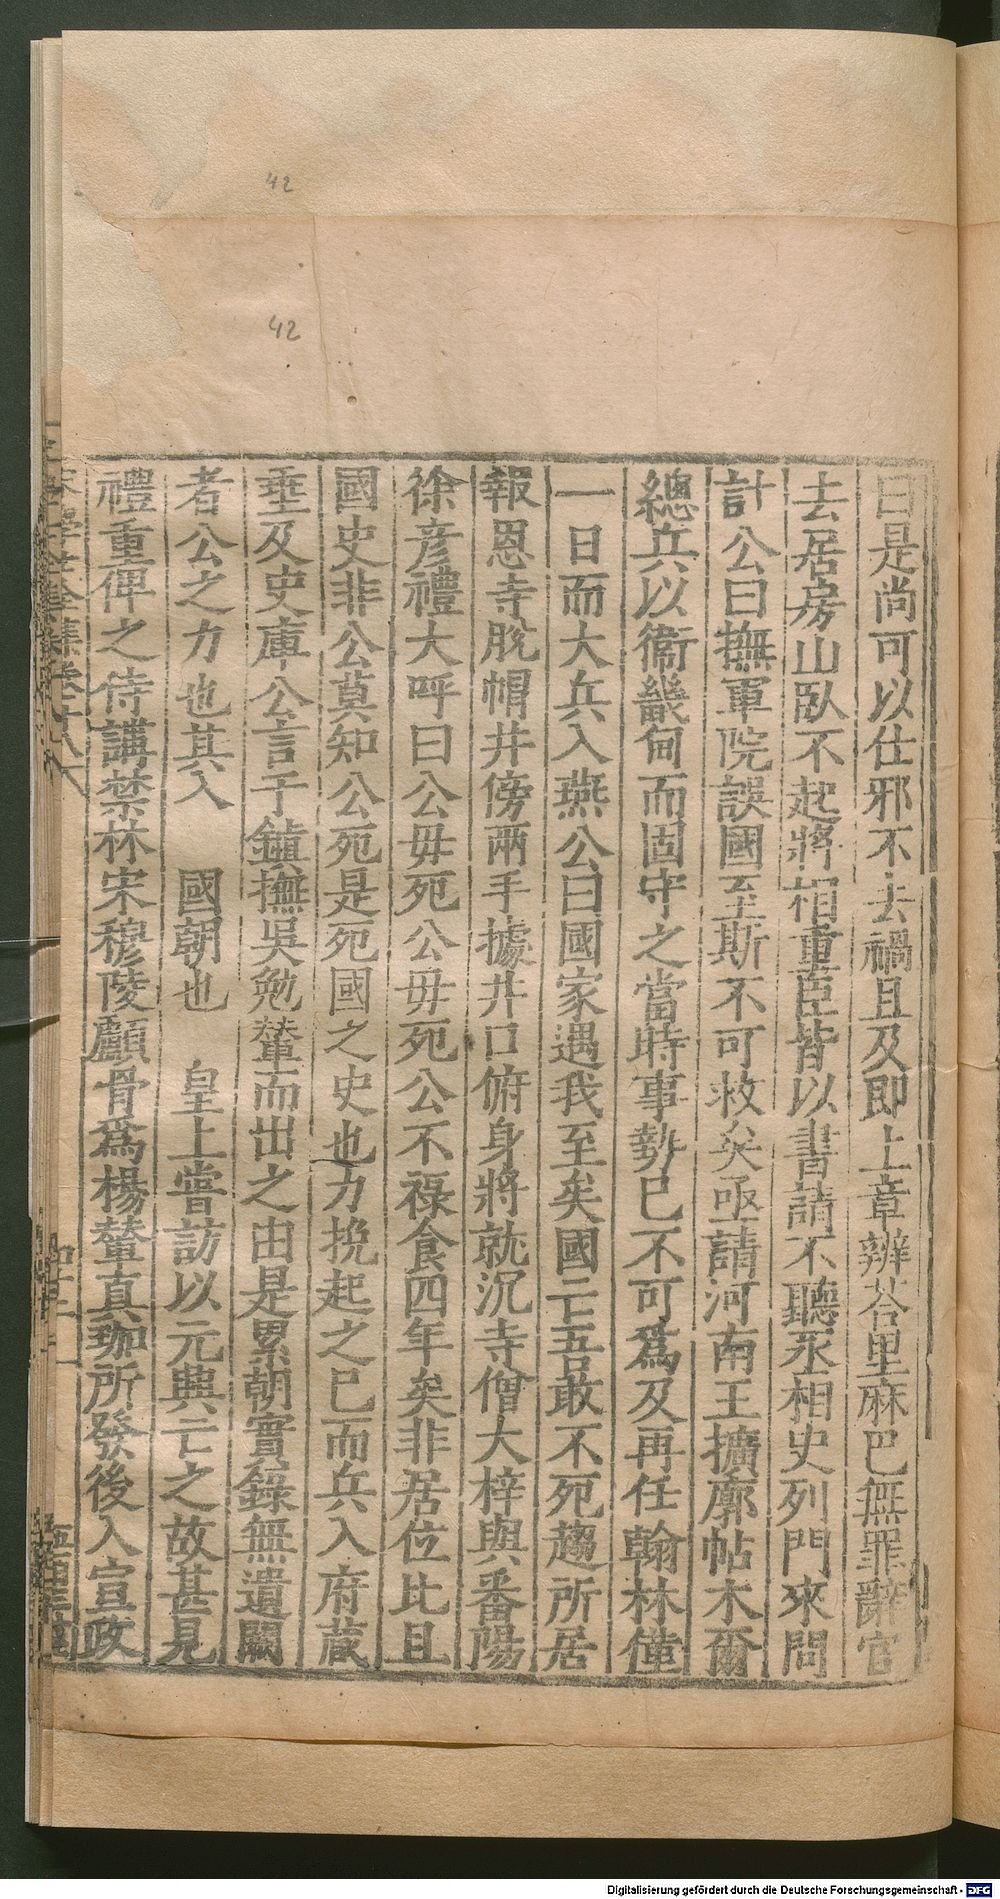 42
42
曰是尚可以仕邪不去禍且及即上章辨荅里麻巴無罪辭官
去居房山臥不起將相重臣皆以書請不聽丞相史列門來問
計公曰撫軍院誤國至斯不可救矣亟請河南王擴廓帖木爾
總兵以衞畿甸而固守之當時事勢已不可爲及再任翰林僅
一日而大兵入燕公曰國家遇我至矣國亡吾敢不死趨所居
報恩寺脫帽井傍兩手據井口俯身將就沉寺僧大梓與番陽
徐彦禮大呼曰公毋死公毋死公不祿食四年矣非居位比且
國史非公莫知公死是死國之史也力挽起之已而兵入府藏
垂及史庫公言于鎮撫吳勉輦而出之由是累朝實錄無遺闕
者公之力也其入　國朝也　皇上嘗訪以元興亡之故甚見
禮重俾之侍講禁林宋穆陵顱骨爲楊輦真珈所發後入宣政
Digitalisierung gefördert durch die Deutsche Forschungsgemeinschaft - DFG